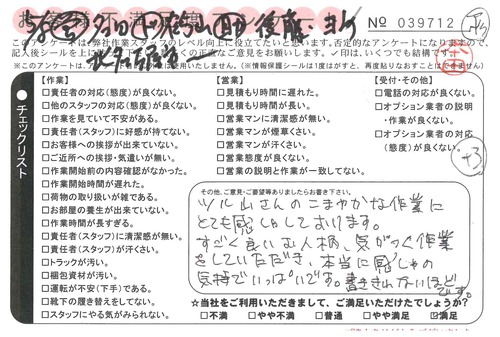 No 039712
このアンケートは弊社作業スタッフのレベル向上に役立てたいと思います。否定的なアンケートになりますので、
記入後シールを上に
ご意見をお願いします。✓印は、いくつでも結構です。
※このアンケートは、
使用いたしません。(※情報保護シールは1度はがすと、再度貼りなおすことはできません)
チェックリスト
【作業】
□責任者の対応(態度)が良くない。
□他のスタッフの対応(態度)が良くない。
□作業を見ていて不安がある。
□責任者(スタッフ)に好感が持てない。
□お客様への挨拶が出来ていない。
□ご近所への挨拶・気遣いが無い。
□作業開始前の内容確認がなかった。
□作業開始時間が遅れた。
□荷物の取り扱いが雑である。
□お部屋の養生が出来ていない。
□作業時間が長すぎる。
□責任者(スタッフ)に清潔感が無い。
□責任者(スタッフ)が汗くさい。
□トラックが汚い。
□梱包資材が汚い。
□運転が不安(下手)である。
□靴下の履き替えをしてない。
□スタッフにやる気がみられない。
【営業】
□見積もり時間に遅れた。
□見積もり時間が長い。
□営業マンに清潔感が無い。
□営業マンが煙草くさい。
□営業マンが汗くさい。
□営業態度が良くない。
□営業の説明と作業が一致してない。
【受付・その他】
□電話の対応が良くない。
□オプション業者の説明
・作業が良くない。
□オプション業者の対応
(態度)が良くない。
+3
その他、ご意見・ご要望等ありましたらお書き下さい。
ツル山さんのこまやかな作業に
とても感しゃしております。
すごく良いお人柄、気がつく作業
をしていただき、本当に感しゃの
気持でいっぱいです。書ききれないほど
です。
☆当社をご利用いただきまして、ご満足いただけたでしょうか?
□不満 □やや不満 □普通 □やや満足 ☑満足